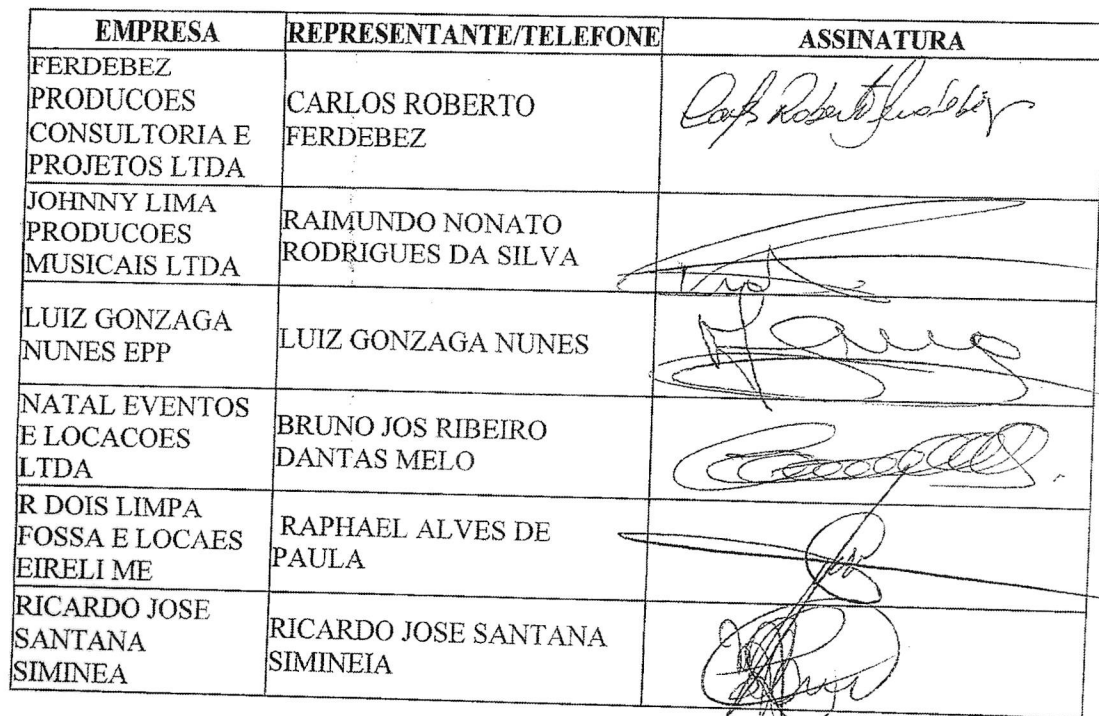 EMPRESA REPRESENTANTE/TELEFONE ASSINATURA
FERDEBEZ
PRODUCOES
CONSULTORIA E
PROJETOS LTDA
CARLOS ROBERTO
FERDEBEZ
Carlos Roberto Ferdebez
JOHNNY LIMA
PRODUCOES
MUSICAIS LTDA
RAIMUNDO NONATO
RODRIGUES DA SILVA
LUIZ GONZAGA
NUNES EPP
LUIZ GONZAGA NUNES
NATAL EVENTOS
E LOCACOES
LTDA
BRUNO JOS RIBEIRO
DANTAS MELO
R DOIS LIMPA
FOSSA E LOCAES
EIRELI ME
RAPHAEL ALVES DE
PAULA
RICARDO JOSE
SANTANA
SIMINEA
RICARDO JOSE SANTANA
SIMINEIA